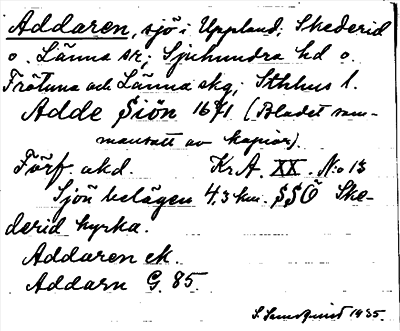 Addaren, sjö i Uppland: Skederid
o. Länna sr; Sjuhundra hd o.
Frötuna och Länna skg; Sthlms l.
Adde Siön 1671 (Bladet sam-
mansatt av kopior).
Förf. okd. Kr.A. XX. N:o 13
Sjön belägen 4.3 km. SSÖ Ske-
derid kyrka.
Addaren ek.
Addarn G. 85.
1935.